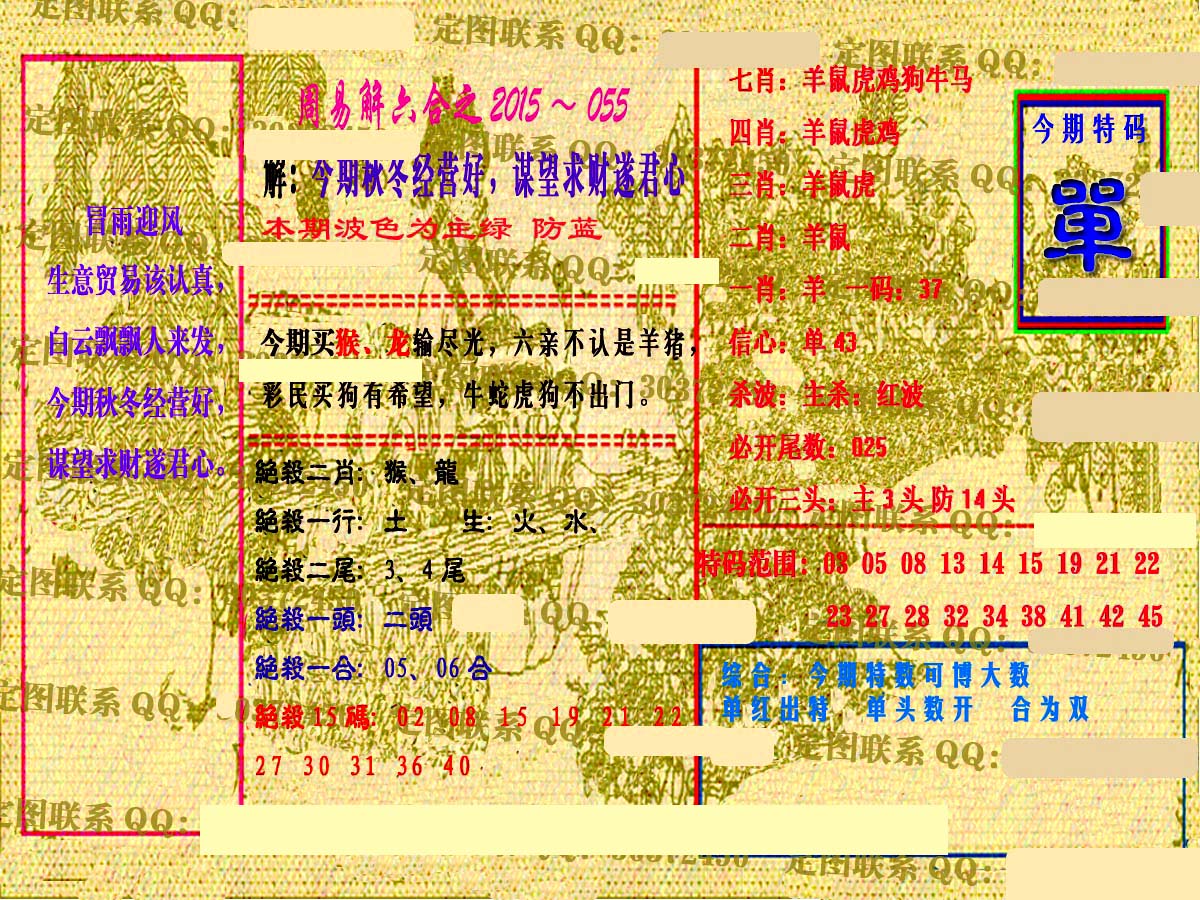 周易解六合之 2015～055
冒雨迎风
生意贸易该认真，
白云飘飘人来发，
今期秋冬经营好，
谋望求财遂君心。
解：今期秋冬经营好，谋望求财遂君心
本期波色为主绿 防蓝
今期买猴、龙输尽光，六亲不认是羊猪，
彩民买狗有希望，牛蛇虎狗不出门。
絕殺二肖：猴、龍
絕殺一行：土 生：火、水、
絕殺二尾：3、4尾
絕殺一頭：二頭
絕殺一合：05、06合
絕殺15碼：02 08 15 19 21 22
27 30 31 36 40
七肖：羊鼠虎鸡狗牛马
四肖：羊鼠虎鸡
三肖：羊鼠虎
二肖：羊鼠
一肖：羊 一码：37
信心：单43
杀波：主杀：红波
必开尾数：025
必开三头：主3头防14头
今期特码
單
特码范围：03 05 08 13 14 15 19 21 22
23 27 28 32 34 38 41 42 45
综合：今期特数可博大数
单红出特 单头数开 合为双
定图联系 QQ：
定图联系 QQ：
定图联系 QQ：
定图联系 QQ：
定图联系 QQ：
定图联系 QQ：
定图联系 QQ：
定图联系 QQ：
定图联系 QQ：
定图联系 QQ：